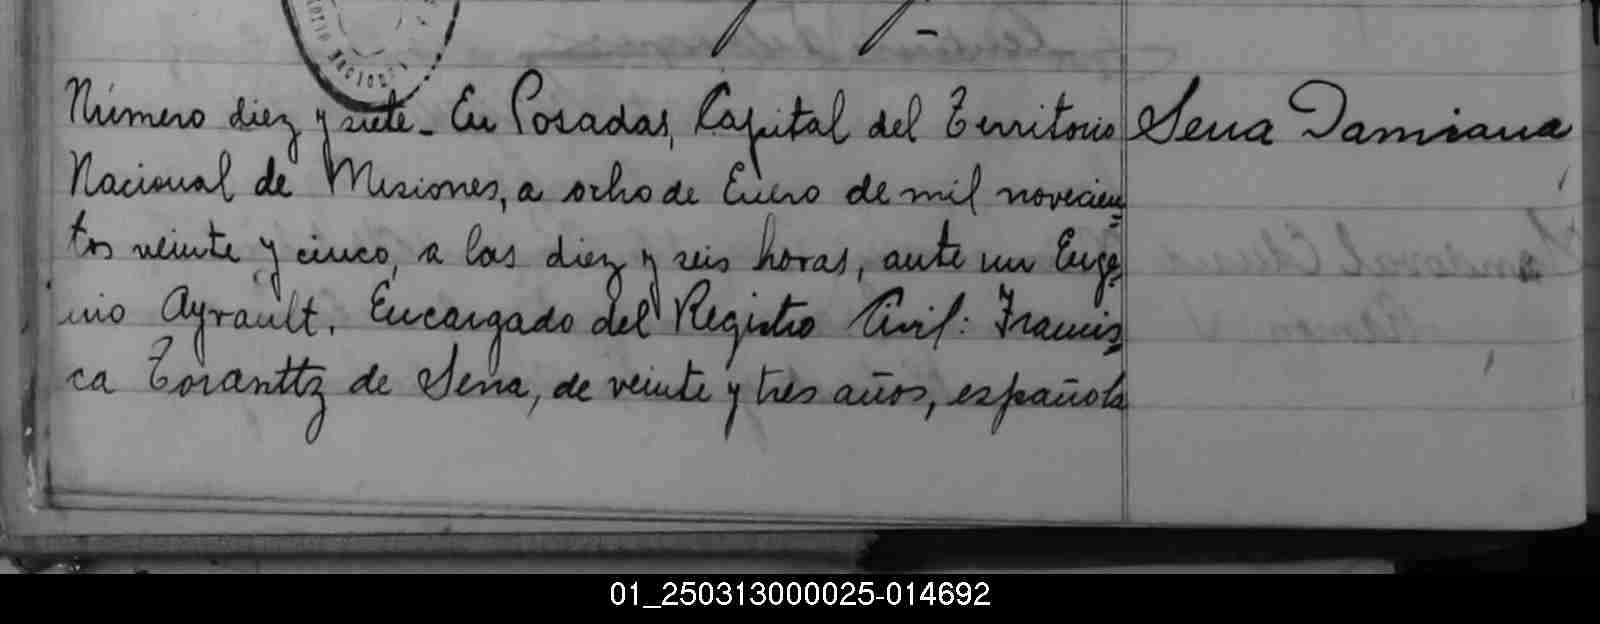 Número diez y siete. En Posadas, Capital del Territorio
Sena Damiana
Nacional de Misiones, a ocho de Enero de mil novecien=
tos veinte y cinco, a las diez y seis horas, ante mi Euge=
nio Ayrault, Encargado del Registro Civil: Francis=
ca Toranttz de Sena, de veinte y tres años, española
01_250313000025-014692